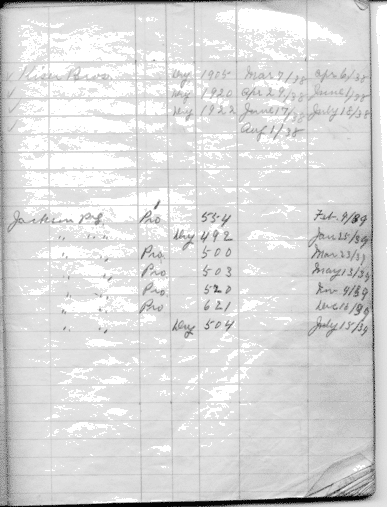 ✓ Kiser Bros. Dry 1905 Mar 9/38 Apr 6/38
✓ Dry 1920 Apr 29/38 June 1/38
✓ Dry 1922 June 17/38 July 12/38
✓ Aug 1/38
Jackson Pro 554 Feb. 9/39
" " " Dry 492 Jan 25/39
" " Pro. 500 Mar 23/39
" " Pro. 503 May 13/39
" " Pro. 520 9/39
" " Pro 621 Dec 16/39
" " Dry 504 July 15/39